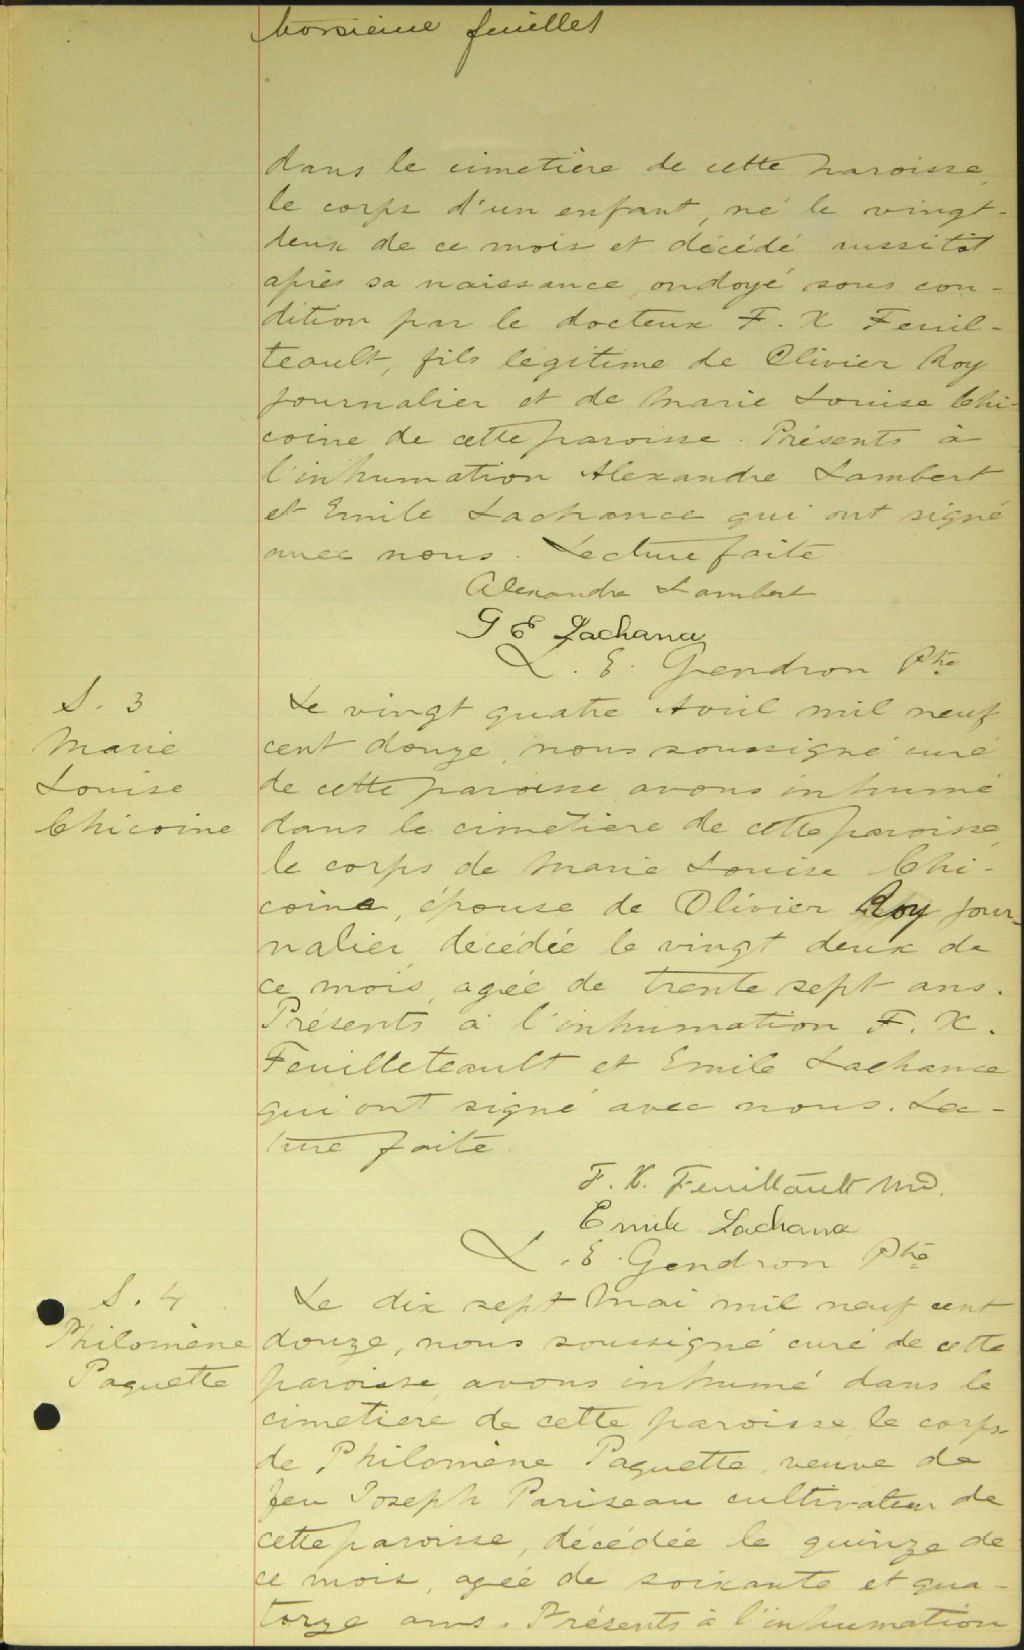 troisième feuillet
dans le cimetière de cette paroisse,
le corps d'un enfant, né le vingt-
deux de ce mois et décédé aussitôt
après sa naissance, ondoyé sous con-
dition par le docteur F. X Feuil-
teault, fils légitime de Olivier Roy
journalier et de Marie Louise Chi-
coine de cette paroisse. Présents à
l'inhumation Alexandre Lambert
et Emile Lachance qui ont signé
avec nous. Lecture faite
Alexandre Lambert
G E Lachance
L. E. Gendron Ptre
S. 3
Marie
Louise
Chicoine
Le vingt quatre Avril mil neuf
cent douze, nous soussigné curé
de cette paroisse avons inhumé
dans le cimetière de cette paroisse,
le corps de Marie Louise Chi-
coine, épouse de Olivier Roy jour-
nalier, décédée le vingt deux de
ce mois, agée de trente sept ans.
Présents à l'inhumation F. X.
Feuilleteault et Emile Lachance
qui ont signé avec nous. Lec-
ture faite
F. X. Feuillault MD.
Emile Lachance
L. E. Gendron Ptre
S. 4
Philomène
Paquette
Le dix sept Mai mil neuf cent
douze, nous soussigné curé de cette
paroisse, avons inhumé dans le
cimetiere de cette paroisse, le corps
de Philomène Paquette, veuve de
feu Joseph Pariseau cultivateur de
cette paroisse, décédée le quinze de
ce mois, agée de soixante et qua-
torze ans. Présents à l'inhumation